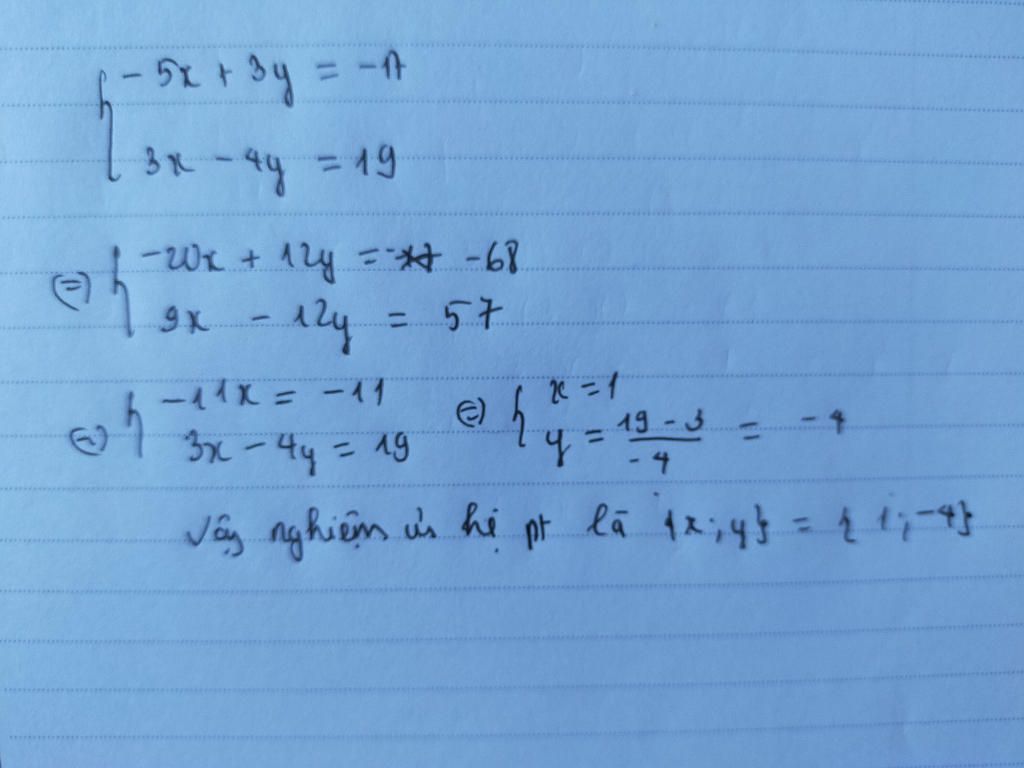 { -5x + 3y = -17
3x - 4y = 19
(=) { -20x + 12y = -68
9x - 12y = 57
(=) { -11x = -11 (=) { x = 1
3x - 4y = 19 y = \frac{19 - 3}{-4} = -4
Vậy nghiệm của hệ pt là {x; y} = {1; -4}